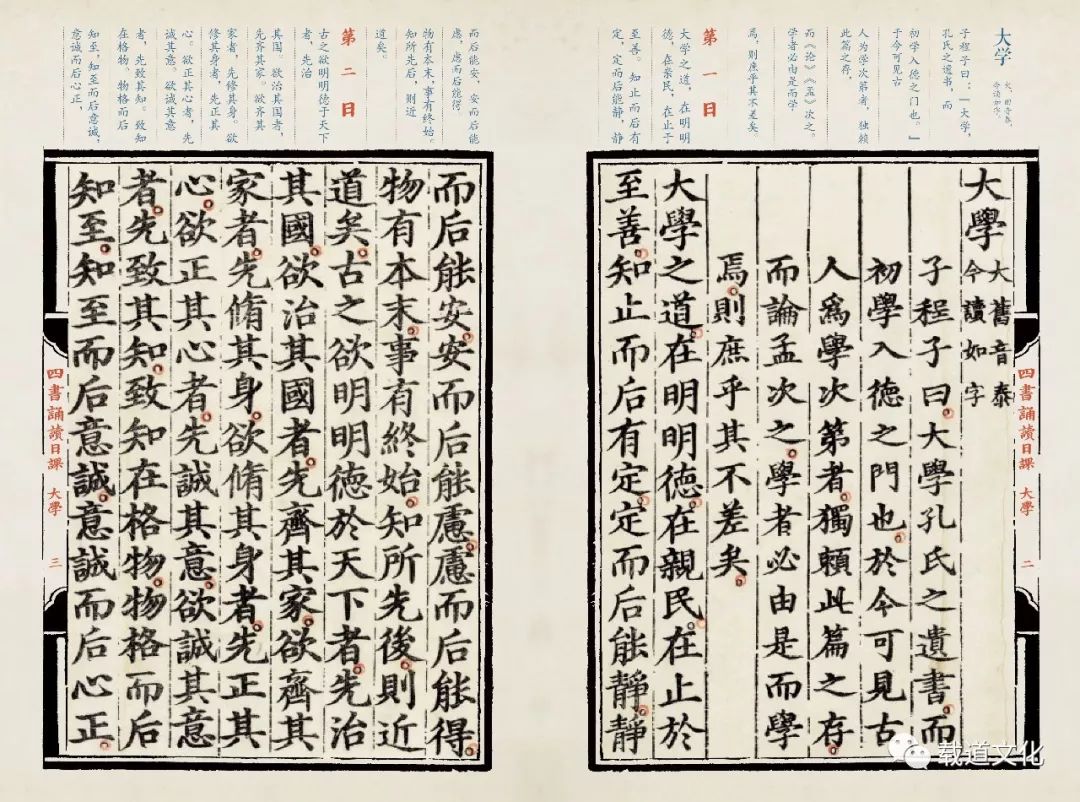 大学
大，旧音泰，
今读如字。
子程子曰：“大学，
孔氏之遗书，而
初学入德之门也。”
于今可见古
人为学次第者，独赖
此篇之存，
而《论》《孟》次之。
学者必由是而学
焉，则庶乎其不差矣
第一日
大学之道，在明明
德，在亲民，在止于
至善。知止而后有
定，定而后能静，静
大學
大舊音泰
今讀如字
子程子曰。大學孔氏之遺書。而
初學入德之門也。於今可見古
人爲學次第者。獨賴此篇之存。
而論孟次之。學者必由是而學
焉。則庶乎其不差矣。
大學之道。在明明德。在親民。在止於
至善。知止而后有定。定而后能靜。靜
四書誦讀日課 大學 二
而后能安，安而后能
虑，虑而后能得。
物有本末，事有终始。
知所先后，则近
道矣。
第二日
古之欲明明德于天下
者，先治
其国。欲治其国者，
先齐其家。欲齐其
家者，先修其身。欲
修其身者，先正其
心。欲正其心者，先
诚其意。欲诚其意
者，先致其知。致知
在格物。物格而后
知至，知至而后意诚，
意诚而后心正，
而后能安。安而后能慮。慮而后能得。
物有本末。事有終始。知所先後。則近
道矣。古之欲明明德於天下者。先治
其國。欲治其國者。先齊其家。欲齊其
家者。先脩其身。欲脩其身者。先正其
心。欲正其心者。先誠其意。欲誠其意
者。先致其知。致知在格物。物格而后
知至。知至而后意誠。意誠而后心正。
四書誦讀日課 大學 三
载道文化